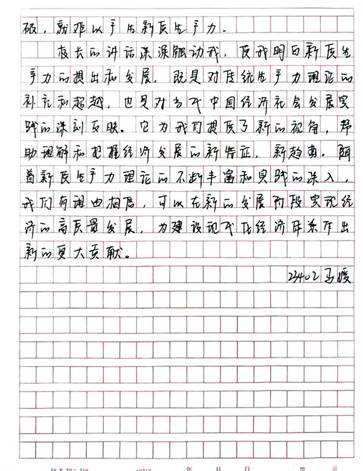 破，就难以产生新质生产力。
校长的讲话深深触动我，使我明白新质生
产力的提出和发展，既是对传统生产力理论的
补充和超越，也是对当代中国经济社会发展实
践的深刻反映。它为我们提供了新的视角，帮
助理解和把握经济发展的新特征、新趋势。随
着新质生产力理论的不断丰富和实践的深入，
我们有理由相信，可以在新的发展阶段实现经
济的高质量发展，为建设现代化经济体系作出
新的更大贡献。
23402 马媛
年 月 日